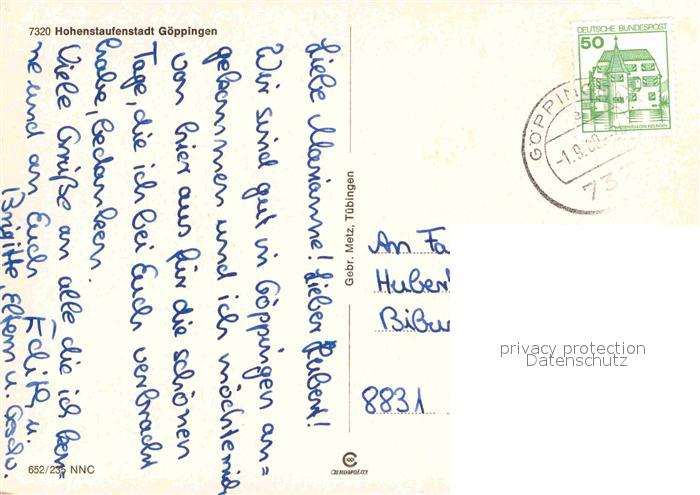 7320 Hohenstaufenstadt Göppingen
Liebe Marianne! Lieber Hubert!
Wir sind gut in Göppingen an=
gekommen und ich möchte mich
von hier aus für die schönen
Tage, die ich bei Euch verbracht
habe, bedanken.
Viele Grüße an alle, die ich ken=
ne und an Euch
Edith u.
Brigitte, Eltern u. Geschw.
652/235 NNC
Gebr. Metz, Tübingen
DEUTSCHE BUNDESPOST
50
GÖPPING
-1.9.80
73
An Fa
Huber
Bibu
8831
privacy protection
Datenschutz